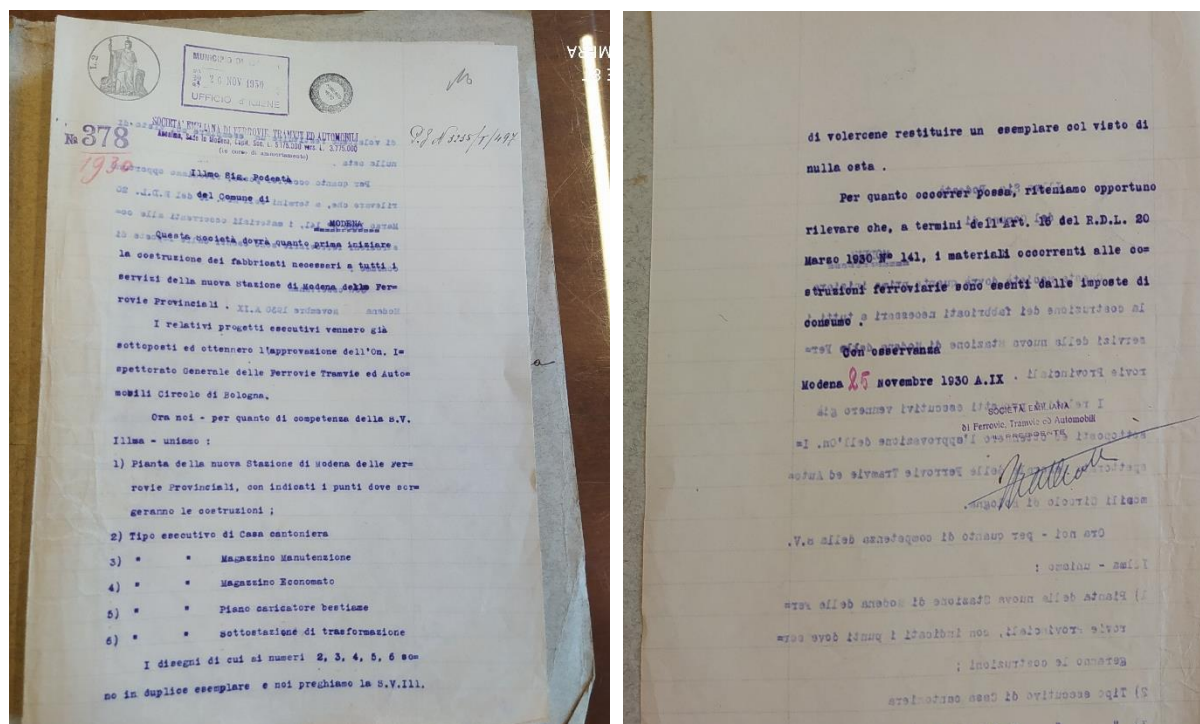 L.2
MUNICIPIO DI
26 NOV 1930
UFFICIO D'IGIENE
No 378
1930
SOCIETÀ EMILIANA DI FERROVIE TRAMVIE ED AUTOMOBILI
Anonima, Sede in Modena, Capit. Soc. L. 5.175.000 vers. L. 3.775.000
(in corso di ammortamento)
P.G N 3235/1/497
Illmo Sig. Podestà
del Comune di
MODENA
Questa società dovrà quanto prima iniziare
la costruzione dei fabbricati necessari a tutti i
servizi della nuova Stazione di Modena delle Fer=
rovie Provinciali .
I relativi progetti esecutivi vennero già
sottoposti ed ottennero l'approvazione dell'On. I=
spettorato Generale delle Ferrovie Tramvie ed Auto=
mobili Circolo di Bologna.
Ora noi - per quanto di competenza della S.V.
Illma - uniamo :
1) Pianta della nuova Stazione di Modena delle Fer=
rovie Provinciali, con indicati i punti dove sor=
geranno le costruzioni ;
2) Tipo esecutivo di Casa cantoniera
3) " " Magazzino Manutenzione
4) " " Magazzino Economato
5) " " Piano caricatore bestiame
6) " " Sottostazione di trasformazione
I disegni di cui ai numeri 2, 3, 4, 5, 6 so=
no in duplice esemplare e noi preghiamo la S.V.Ill.
di volercene restituire un esemplare col visto di
nulla osta .
Per quanto occorrer possa, riteniamo opportuno
rilevare che, a termini dell'Art. 16 del R.D.L. 20
Marzo 1930 N° 141, i materiali occorrenti alle co=
struzioni ferroviarie sono esenti dalle imposte di
consumo .
Con osservanza
Modena 25 Novembre 1930 A.IX .
SOCIETÀ EMILIANA
di Ferrovie, Tramvie ed Automobili